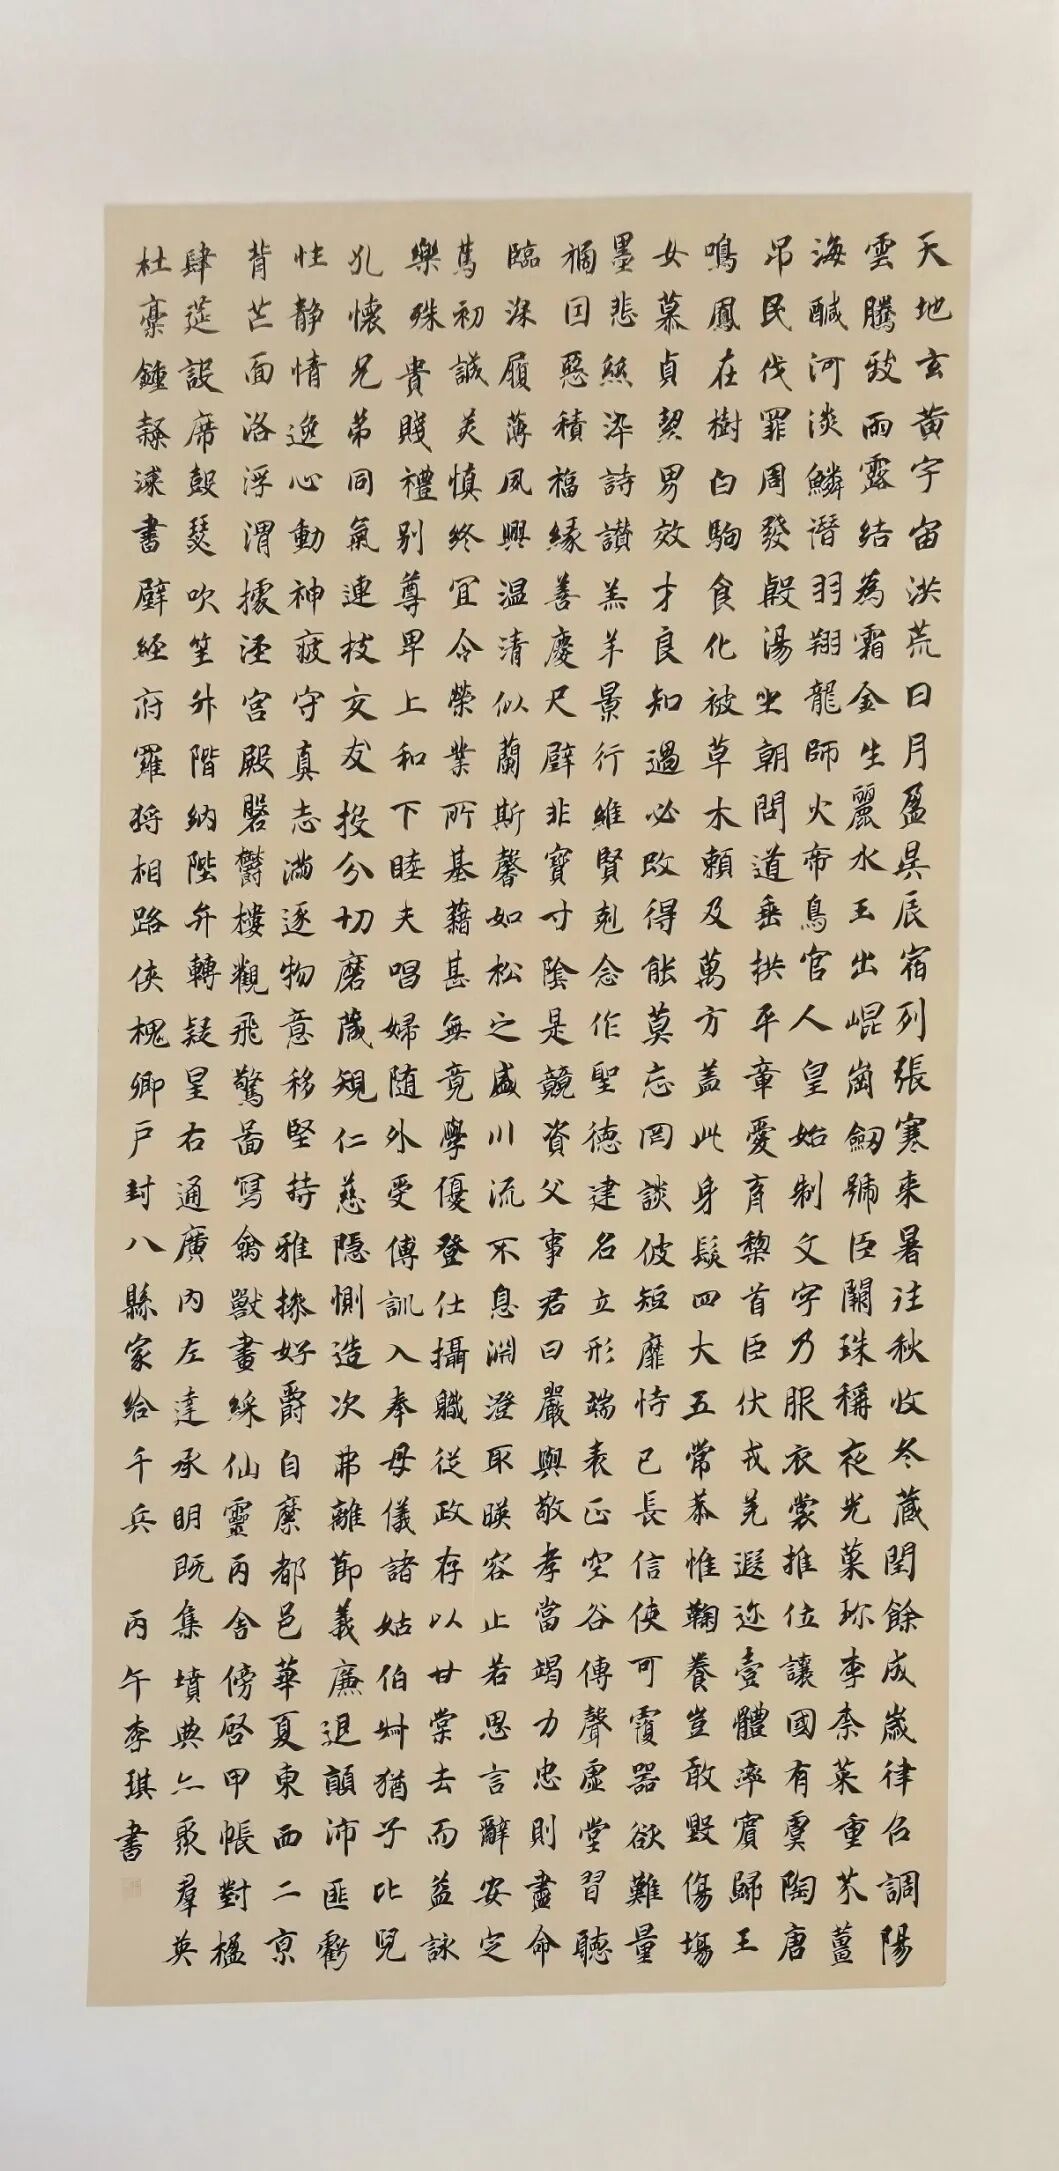 天地玄黃宇宙洪荒日月盈昃辰宿列張寒来暑往秋收冬藏閏餘成歲律召調陽
雲騰致雨露結為霜金生麗水玉出崐崗劒號巨闕珠稱夜光菓珍李柰菜重芥薑
海醎河淡鱗潛羽翔龍師火帝鳥官人皇始制文字乃服衣裳推位讓國有虞陶唐
吊民伐罪周發殷湯坐朝問道垂拱平章愛育黎首臣伏戎羌遐迩壹體率賓歸王
鳴鳳在樹白駒食化被草木賴及萬方蓋此身髮四大五常恭惟鞠養豈敢毀傷塲
女慕貞絜男效才良知過必改得能莫忘罔談彼短靡恃己長信使可覆器欲難量
墨悲絲染詩讃羔羊景行維賢剋念作聖德建名立形端表正空谷傳聲虛堂習聽
禍因惡積福緣善慶尺璧非寶寸陰是競資父事君曰嚴與敬孝當竭力忠則盡命
臨深履薄夙興温清似蘭斯馨如松之盛川流不息淵澄取暎容止若思言辭安定
篤初誠美慎終宜令榮業所基藉甚無竟學優登仕攝職從政存以甘棠去而益詠
樂殊貴賤禮別尊卑上和下睦夫唱婦随外受傅訓入奉母儀諸姑伯叔猶子比兒
孔懷兄弟同氣連枝交友投分切磨箴規仁慈隱惻造次弗離節義廉退顛沛匪虧
性靜情逸心動神疲守真志滿逐物意移堅持雅操好爵自縻都邑華夏東西二京
背芒面洛浮渭據涇宮殿磐鬱樓觀飛驚啚寫禽獸畫綵仙靈丙舍傍啓甲帳對楹
肆筵設席鼓瑟吹笙升階納陛弁轉疑星右通廣內左達承明既集墳典亦聚羣英
杜稾鍾隸漆書壁經府羅將相路俠槐卿戶封八縣家給千兵 丙午李琪書